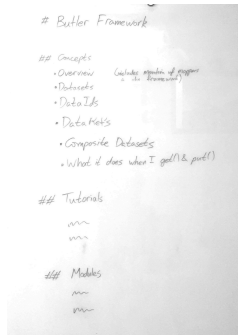 # Butler Framework
## Concepts
• Overview (includes mention of mappers in framework)
• Datasets
• Data Ids
• Data Refs
• Composite Datasets
• What it does when I get() & put()
## Tutorials
## Modules